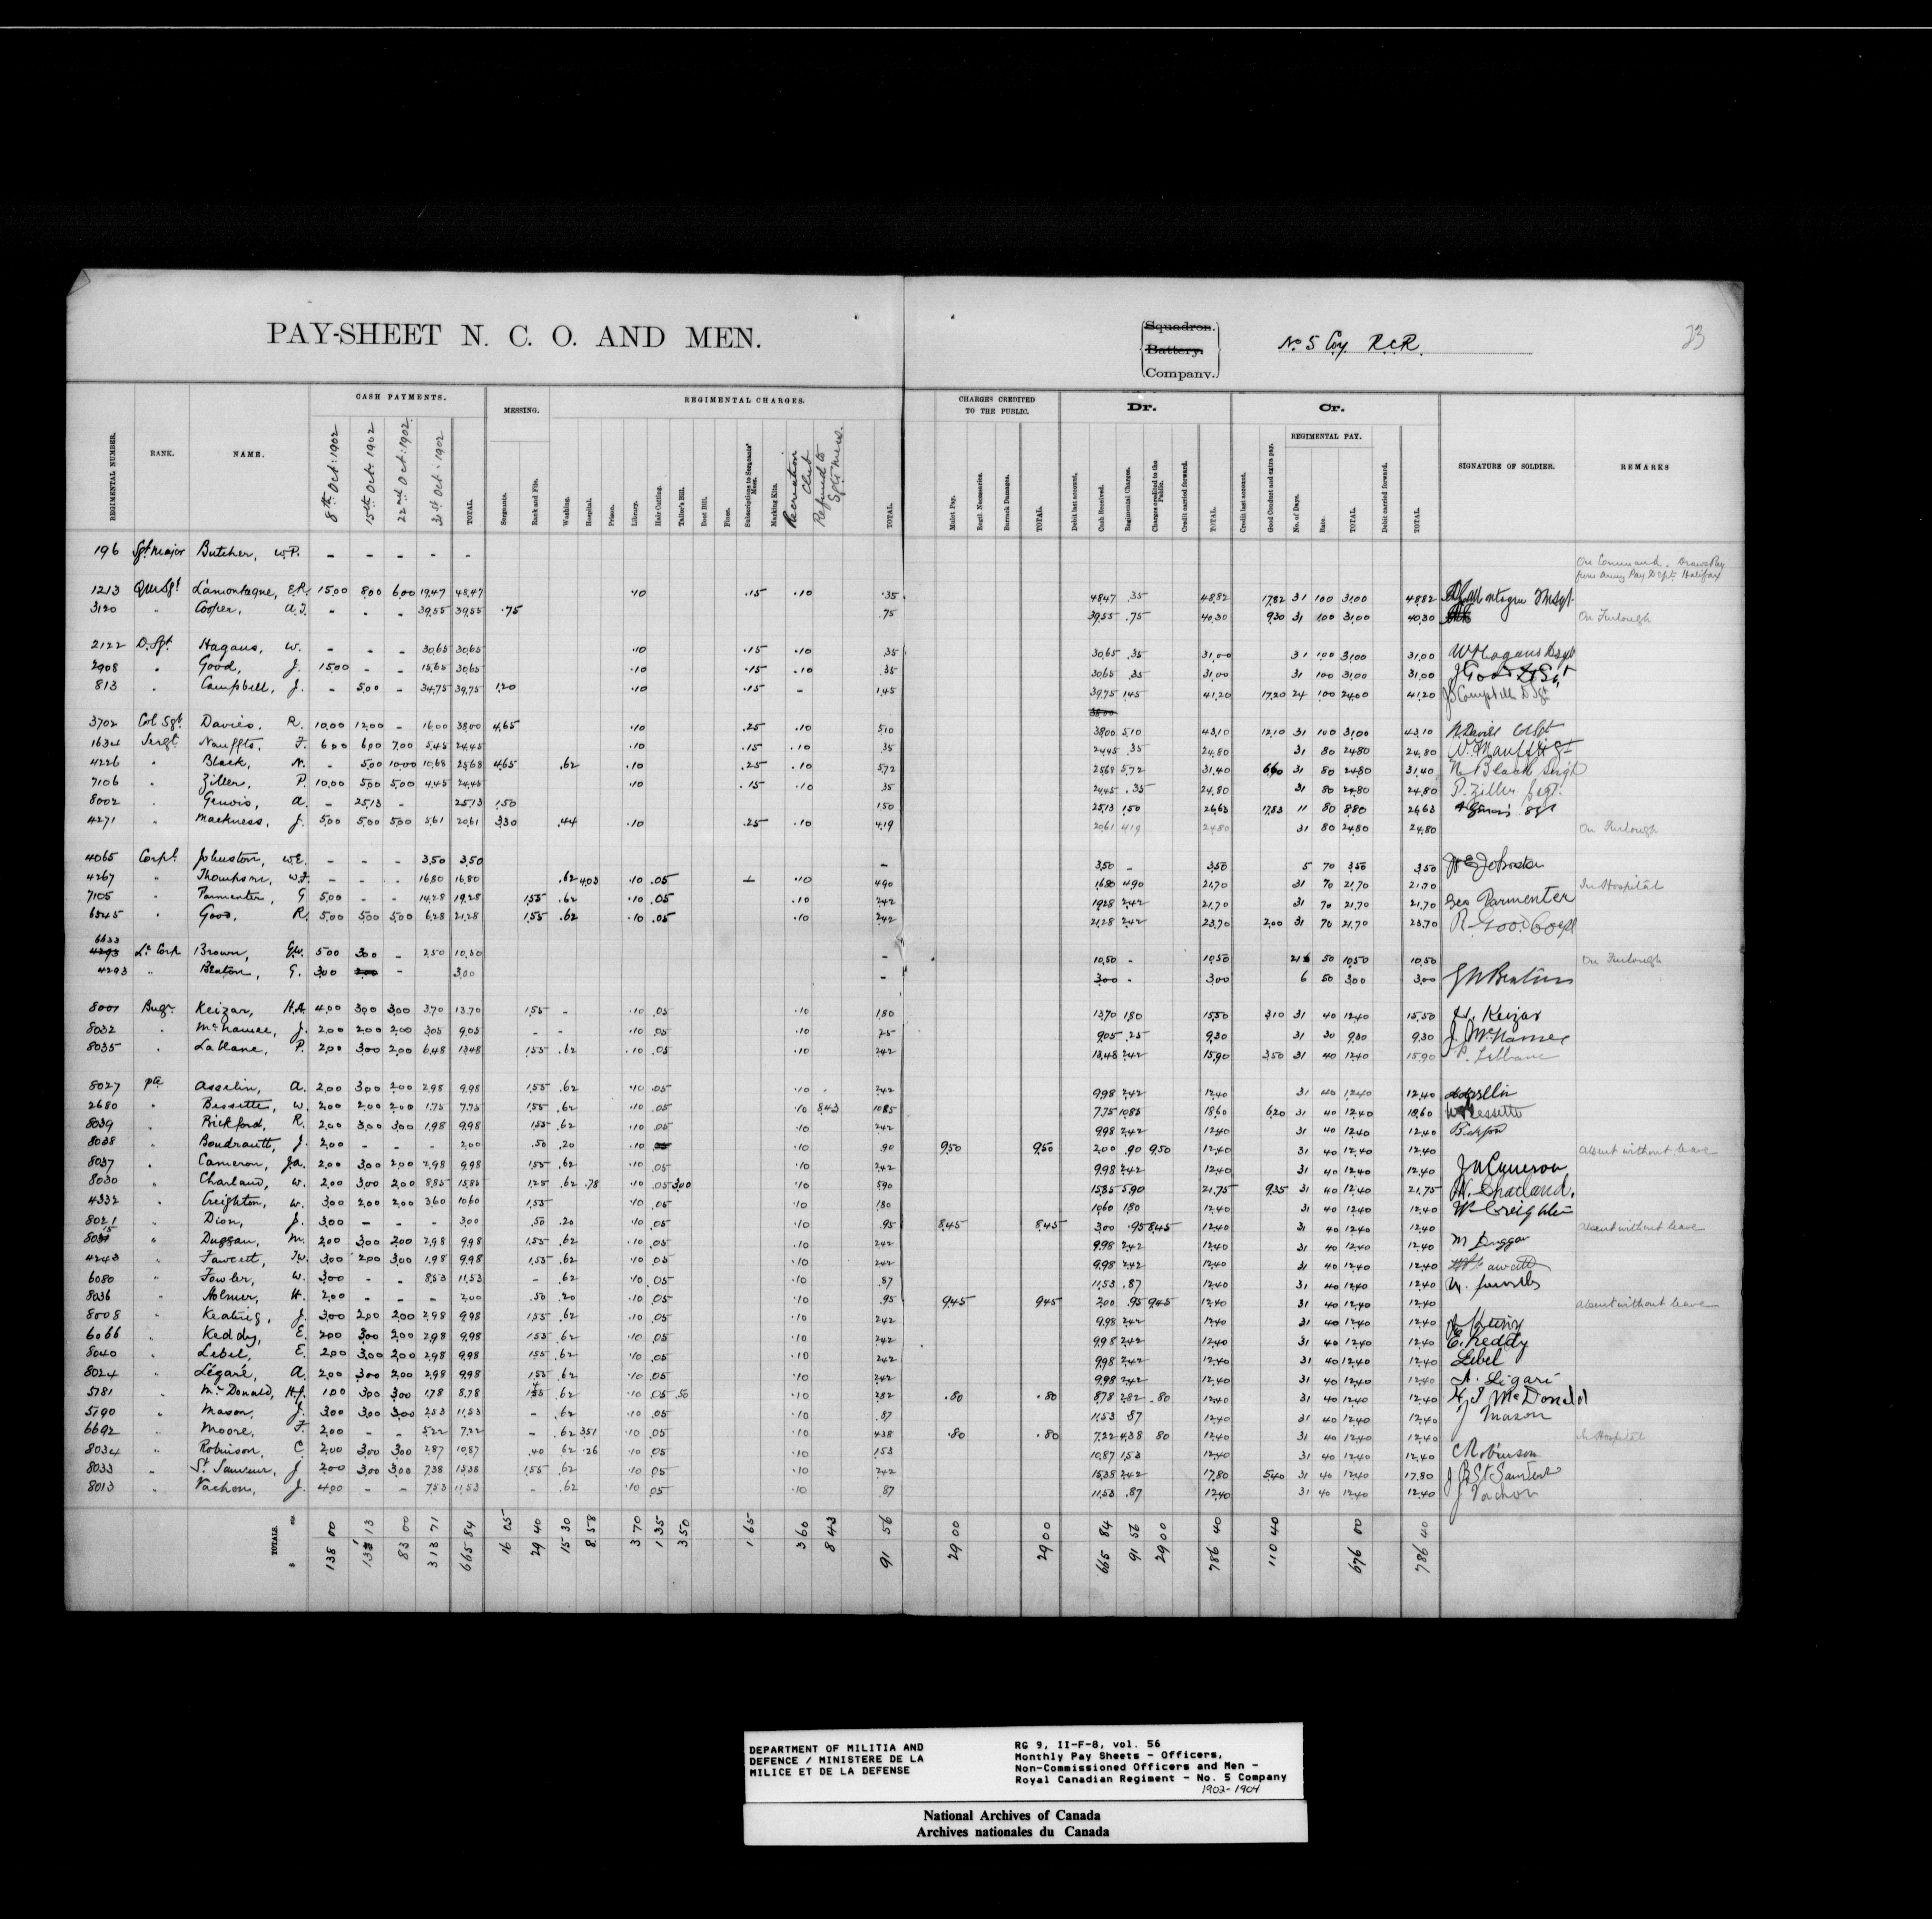 PAY-SHEET N. C. O. AND MEN.
Squadron.
Battery.
Company.
No 5 Coy. R.C.R.
23
REGIMENTAL NUMBER. RANK. NAME. CASH PAYMENTS. MESSING. REGIMENTAL CHARGES. CHARGES CREDITED TO THE PUBLIC. Dr. Cr. REGIMENTAL PAY. SIGNATURE OF SOLDIER. REMARKS
8th Oct: 1902 15th Oct: 1902 22nd Oct: 1902 31st Oct: 1902 TOTAL Sergeants. Rank and File. Washing. Hospital. Prison. Library. Hair Cutting. Tailor's Bill. Boot Bill. Fines. Subscriptions to Sergeants' Mess. Marking Kits. Recreation Club Refund to Sgts. Mess. TOTAL Mulct Pay. Regtl. Necessaries. Barrack Damages. TOTAL. Debit last account. Cash Received. Regimental Charges. Charges credited to the Public. Credit carried forward. TOTAL. Credit last account. Good Conduct and extra pay. No. of Days. Rate. TOTAL Debit carried forward. TOTAL.
196 Sgt. Major Butcher, W.P. - - - - - On Command. Draws Pay from Army Pay Dept. Halifax
1213 QMSgt Lamontagne, E.R. 15.00 8.00 6.00 19.47 48.47 .10 .15 .10 .35 48.47 .35 48.82 17.82 31 100 31.00 48.82
3120 " Cooper, A.J. - - - 39.55 39.55 .75 .75 39.55 .75 40.30 9.30 31 100 31.00 40.30 On Furlough
2122 D.Sgt. Hagans, W. - - - 30.65 30.65 .10 .15 .10 .35 30.65 .35 31.00 31 100 31.00 31.00 W Hagans D Sgt
2908 " Good, J. 15.00 - - 15.65 30.65 .10 .15 .10 .35 30.65 .35 31.00 31 100 31.00 31.00 J Good D Sgt
813 " Campbell, J. - 5.00 - 34.75 39.75 1.20 .10 .15 - 1.45 39.75 1.45 41.20 17.20 24 100 24.00 41.20 J Campbell D Sgt
38.00
3702 Col Sgt. Davies, R. 10.00 12.00 - 16.00 38.00 4.65 .10 .25 .10 5.10 38.00 5.10 43.10 12.10 31 100 31.00 43.10
1634 Sergt. Nauffts, F. 6.00 6.00 7.00 5.45 24.45 .10 .15 .10 .35 24.45 .35 24.80 31 80 24.80 24.80
4226 " Black, N. - 5.00 10.00 10.68 25.68 4.65 .62 .10 .25 .10 5.72 25.68 5.72 31.40 6.60 31 80 24.80 31.40 N Black Sergt
7106 " Ziller, P. 10.00 5.00 5.00 4.45 24.45 .10 .15 .10 .35 24.45 .35 24.80 31 80 24.80 24.80 P. Ziller Sgt.
8002 " Genois, A. - 25.13 - 25.13 1.50 1.50 25.13 1.50 26.63 17.83 11 80 8.80 26.63 A Genois Sgt
4271 " Mackness, J. 5.00 5.00 5.00 5.61 20.61 3.30 .44 .10 .25 .10 4.19 20.61 4.19 24.80 31 80 24.80 24.80 On Furlough
4065 Corpl. Johnston, W.E. - - - 3.50 3.50 - 3.50 - 3.50 5 70 3.50 3.50 W E Johnston
4267 " Thompson, W.J. - - - 16.80 16.80 .62 4.03 .10 .05 - .10 4.90 16.80 4.90 21.70 31 70 21.70 21.70 In Hospital
7105 " Parmenter, G 5.00 - - 14.28 19.28 1.55 .62 .10 .05 .10 2.42 19.28 2.42 21.70 31 70 21.70 21.70 Geo Parmenter
6545 " Good, R. 5.00 5.00 5.00 6.28 21.28 1.55 .62 .10 .05 .10 2.42 21.28 2.42 23.70 2.00 31 70 21.70 23.70 R. Good Corpl
6633
4293 Lc Corp Brown, G.W. 5.00 3.00 - 2.50 10.50 - 10.50 - 10.50 21 50 10.50 10.50 On Furlough
4293 " Benton, G. 3.00 2.00 - 3.00 - 3.00 - 3.00 6 50 3.00 3.00
8001 Bugr. Keizar, H.A. 4.00 3.00 3.00 3.70 13.70 1.55 - .10 .05 .10 1.80 13.70 1.80 15.50 3.10 31 40 12.40 15.50 H. Keizar
8032 " McNamee, J. 2.00 2.00 2.00 3.05 9.05 - - .10 .05 .10 .25 9.05 .25 9.30 31 30 9.30 9.30 J. McNamee
8035 " Lablane, P. 2.00 3.00 2.00 6.48 13.48 1.55 .62 .10 .05 .10 2.42 13.48 2.42 15.90 3.50 31 40 12.40 15.90 P. Lablane
8027 Pte Asselin, A. 2.00 3.00 2.00 2.98 9.98 1.55 .62 .10 .05 .10 2.42 9.98 2.42 12.40 31 40 12.40 12.40
2680 " Bessette, W. 2.00 2.00 2.00 1.75 7.75 1.55 .62 .10 .05 .10 8.43 10.85 7.75 10.85 18.60 6.20 31 40 12.40 18.60 W Bessette
8039 " Bickford, R. 2.00 3.00 3.00 1.98 9.98 1.55 .62 .10 .05 .10 2.42 9.98 2.42 12.40 31 40 12.40 12.40
8038 " Boudrautt, J. 2.00 - - - 2.00 .50 .20 .10 .10 .90 9.50 9.50 2.00 .90 9.50 12.40 31 40 12.40 12.40 Absent without leave
8037 " Cameron, J.A. 2.00 3.00 2.00 2.98 9.98 1.55 .62 .10 .05 .10 2.42 9.98 2.42 12.40 31 40 12.40 12.40 J A Cameron
8030 " Charland, W. 2.00 3.00 2.00 8.85 15.85 1.25 .62 .78 .10 .05 3.00 .10 5.90 15.85 5.90 21.75 9.35 31 40 12.40 21.75 W. Charland.
4332 " Creighton, W. 3.00 2.00 2.00 3.60 10.60 1.55 .10 .05 .10 1.80 10.60 1.80 12.40 31 40 12.40 12.40 W Creighton
8021 " Dion, J. 3.00 - - - 3.00 .50 .20 .10 .05 .10 .95 8.45 8.45 3.00 .95 8.45 12.40 31 40 12.40 12.40 Absent without leave
" Duggan, M. 2.00 3.00 2.00 2.98 9.98 1.55 .62 .10 .05 .10 2.42 9.98 2.42 12.40 31 40 12.40 12.40 M Duggan
4243 " Fawcett, T.W. 3.00 2.00 3.00 1.98 9.98 1.55 .62 .10 .05 .10 2.42 9.98 2.42 12.40 31 40 12.40 12.40
6080 " Fowler, W. 3.00 - - 8.53 11.53 - .62 .10 .05 .10 .87 11.53 .87 12.40 31 40 12.40 12.40
8036 " Holmer, H. 2.00 - - - 2.00 .50 .20 .10 .05 .10 .95 9.45 9.45 2.00 .95 9.45 12.40 31 40 12.40 12.40 Absent without leave
8008 " Keating, J. 3.00 2.00 2.00 2.98 9.98 1.55 .62 .10 .05 .10 2.42 9.98 2.42 12.40 31 40 12.40 12.40
6066 " Keddy, E. 2.00 3.00 2.00 2.98 9.98 1.55 .62 .10 .05 .10 2.42 9.98 2.42 12.40 31 40 12.40 12.40 E. Keddy
8040 " Lebel, E. 2.00 3.00 2.00 2.98 9.98 1.55 .62 .10 .05 .10 2.42 9.98 2.42 12.40 31 40 12.40 12.40 Lebel
8024 " Légaré, A. 2.00 3.00 2.00 2.98 9.98 1.55 .62 .10 .05 .10 2.42 9.98 2.42 12.40 31 40 12.40 12.40 A. Légaré
5781 " McDonald, H.J. 1.00 3.00 3.00 1.78 8.78 .62 .10 .05 .50 .10 2.82 .80 .80 8.78 2.82 .80 12.40 31 40 12.40 12.40 H J McDonald
5790 " Mason, J. 3.00 3.00 3.00 2.53 11.53 - .62 .10 .05 .10 .87 11.53 .87 12.40 31 40 12.40 12.40 J Mason
6692 " Moore, F. 2.00 - - 5.22 7.22 - .62 3.51 .10 .05 .10 4.38 .80 .80 7.22 4.38 80 12.40 31 40 12.40 12.40 In Hospital
8034 " Robinson, C 2.00 3.00 3.00 2.87 10.87 .40 62 .26 .10 .05 .10 1.53 10.87 1.53 12.40 31 40 12.40 12.40 C Robinson
8033 " St. Sauveur, J 2.00 3.00 3.00 7.38 15.38 1.55 .62 .10 .05 .10 2.42 15.38 2.42 17.80 5.40 31 40 12.40 17.80 J B St Sauveur
8013 " Vachon, J. 4.00 - - 7.53 11.53 - .62 .10 .05 .10 .87 11.53 .87 12.40 31 40 12.40 12.40 J Vachon
TOTALS. $ cts. 138 00 131 13 83 00 313 71 665 84 16 05 29 40 15 30 8.58 3 70 1 35 3 50 1 65 3 60 8 43 91 56 29 00 29 00 665 84 91 56 29 00 786 40 110 40 676 00 786 40
DEPARTMENT OF MILITIA AND
DEFENCE / MINISTERE DE LA
MILICE ET DE LA DEFENSE
RG 9, II-F-8, vol. 56
Monthly Pay Sheets - Officers,
Non-Commissioned Officers and Men -
Royal Canadian Regiment - No. 5 Company
1902-1904
National Archives of Canada
Archives nationales du Canada